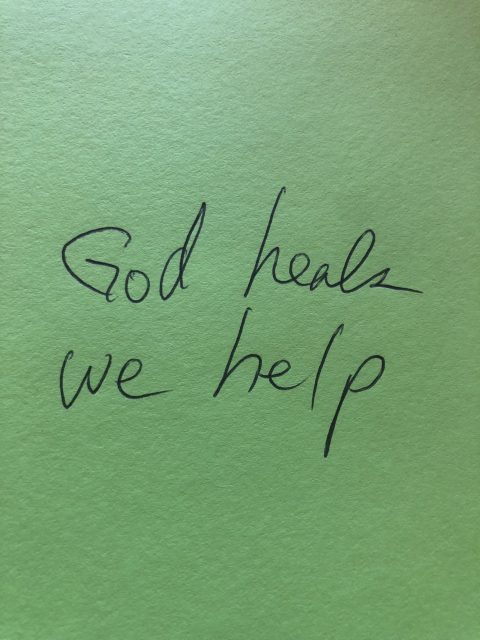 God heals
we help